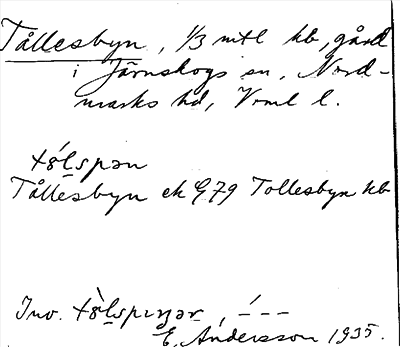 Tållesbyn, 1/3 mtl kb, gård
i Järnskogs sn, Nord-
marks hd, Vrml l.
tɷ́lspən
Tållesbyn ek G79 Tollesbyn kb
Inv. , ---
E. Andersson 1935.